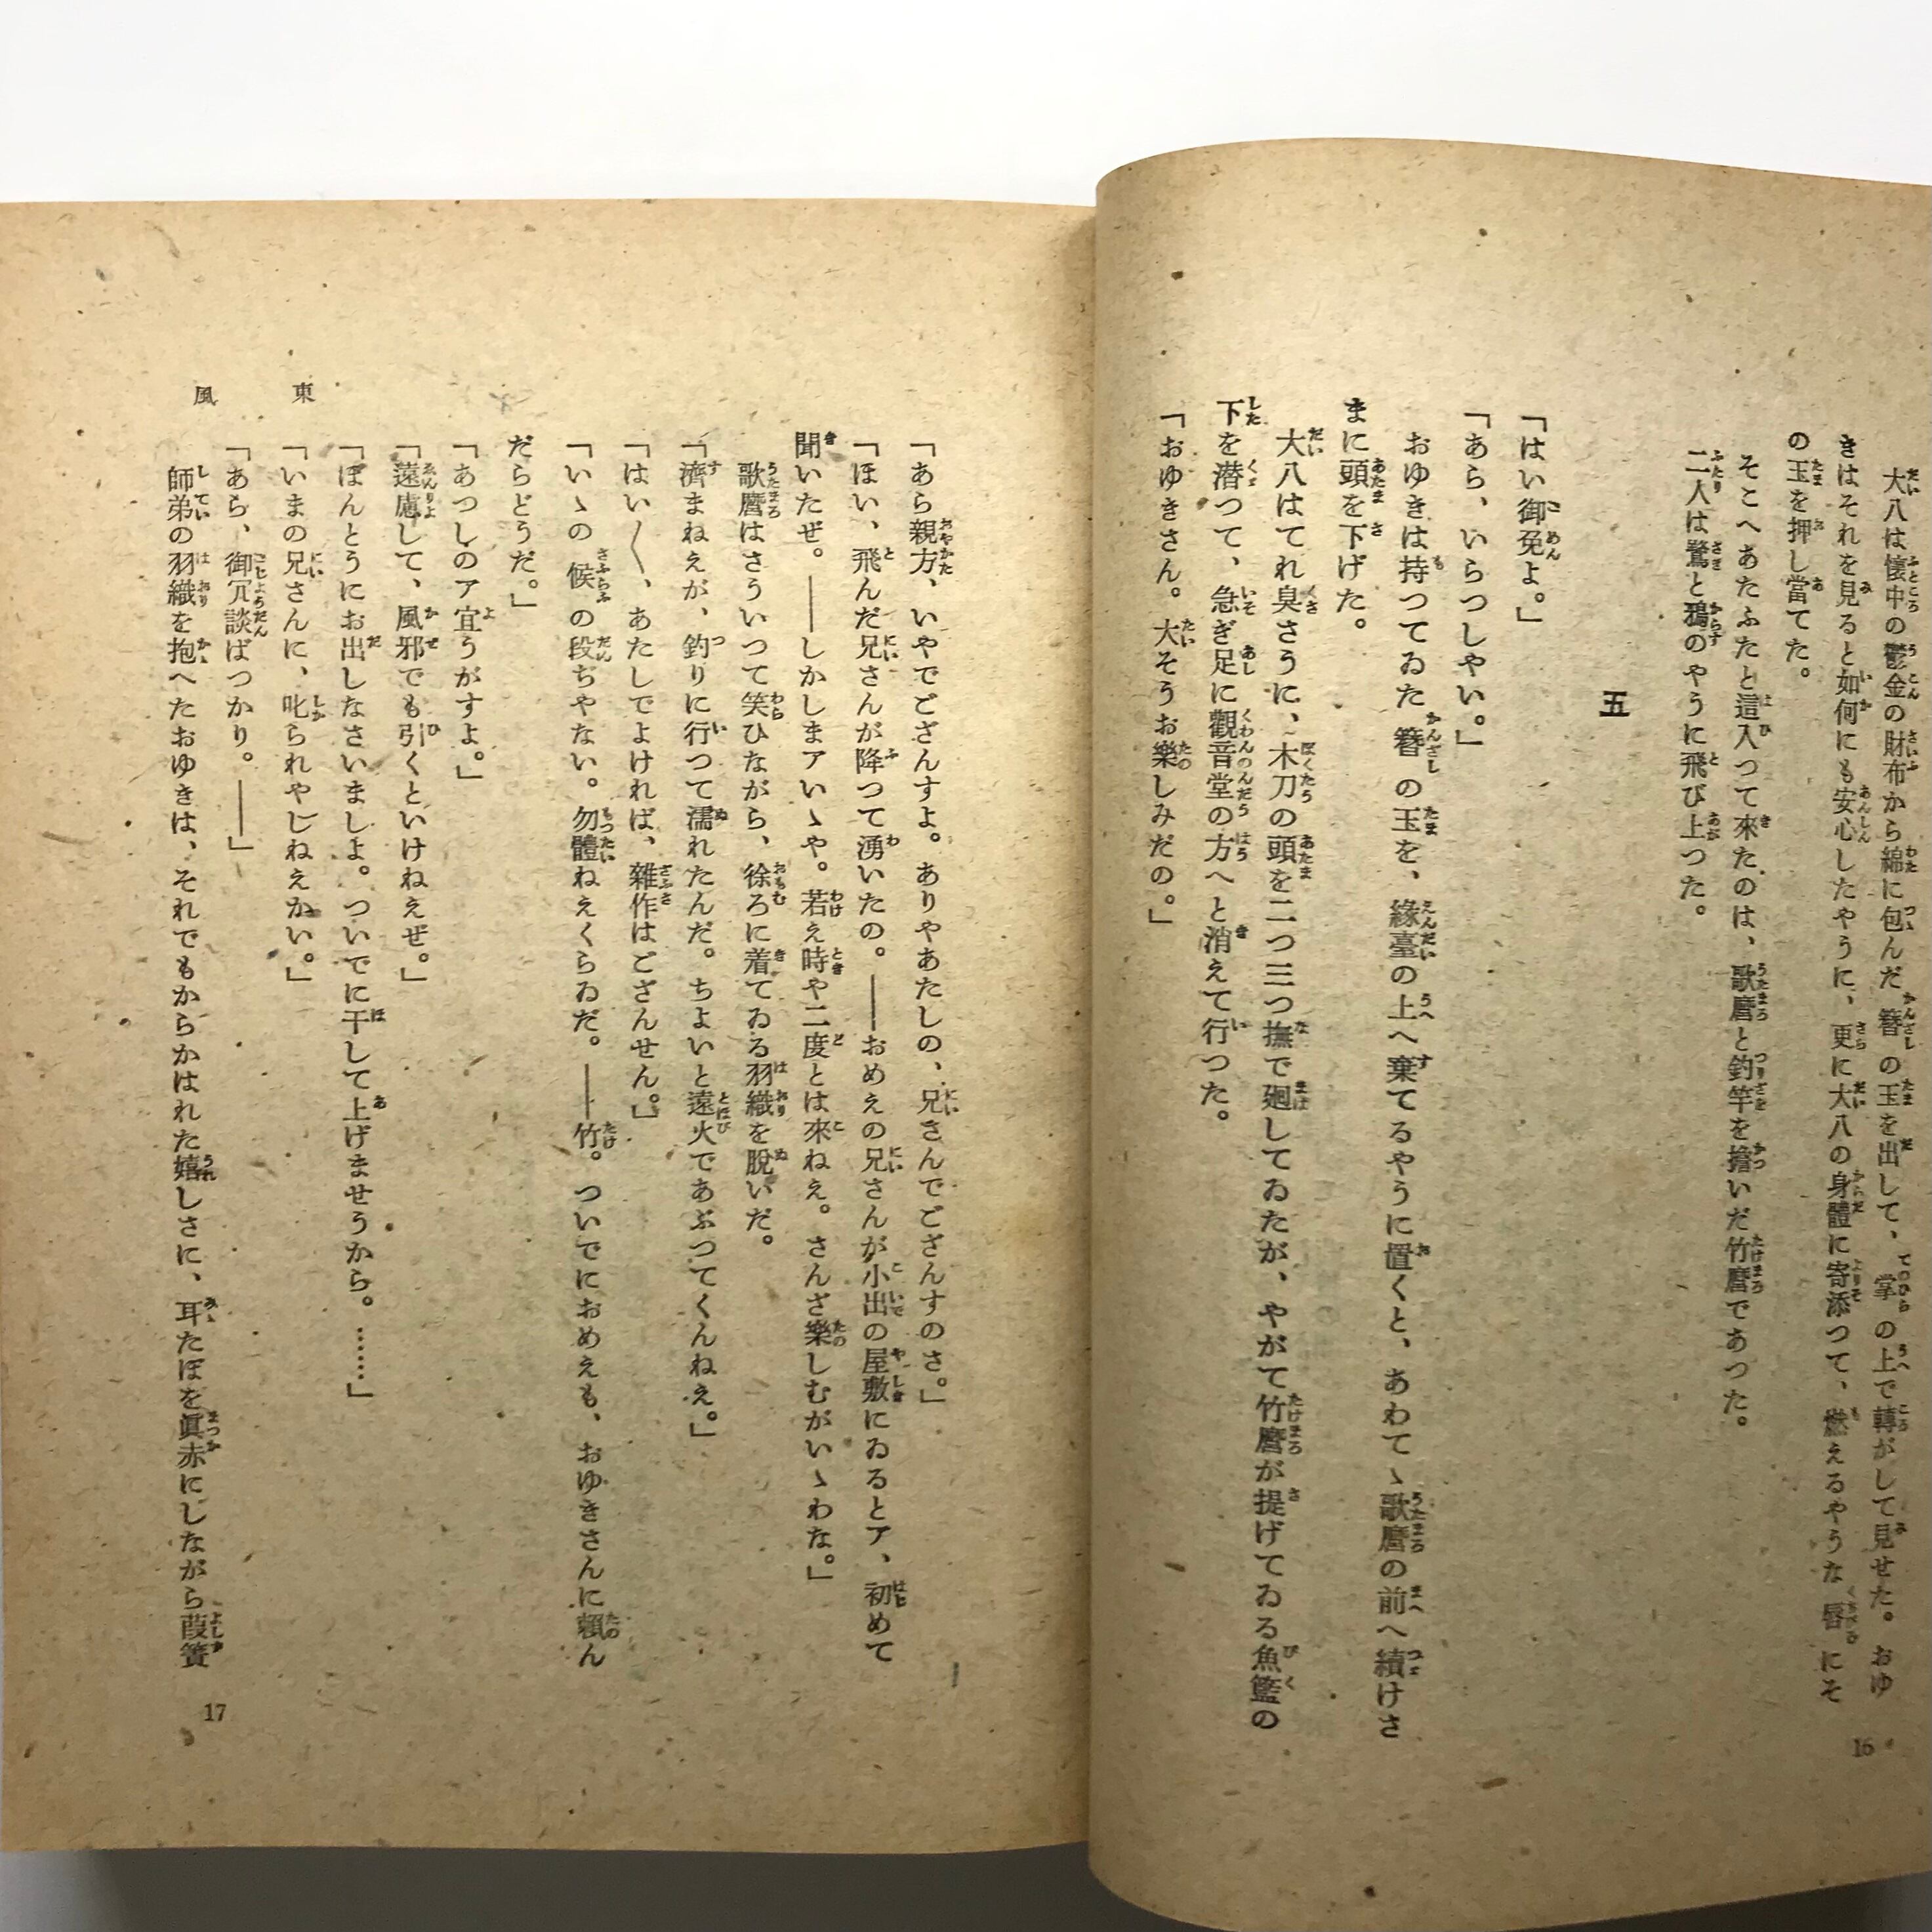 大八は懷中の鬱金の財布から綿に包んだ簪の玉を出して、掌の上で轉がして見せた。おゆ
きはそれを見ると如何にも安心したやうに、更に大八の身體に寄添つて、燃えるやうな唇にそ
の玉を押し當てた。
そこへあたふたと這入つて來たのは、歌麿と釣竿を擔いだ竹麿であつた。
二人は鷺と鴉のやうに飛び上つた。
五
「はい御免よ。」
「あら、いらつしやい。」
おゆきは持つてゐた簪の玉を、緣臺の上へ棄てるやうに置くと、あわてゝ歌麿の前へ續けさ
まに頭を下げた。
大八はてれ臭さうに、木刀の頭を二つ三つ撫で廻してゐたが、やがて竹麿が提げてゐる魚籃の
下を潜つて、急ぎ足に觀音堂の方へと消えて行つた。
「おゆきさん。大そうお樂しみだの。」
16
「あら親方、いやでござんすよ。ありやあたしの、兄さんでござんすのさ。」
「ほい、飛んだ兄さんが降つて湧いたの。――おめえの兄さんが小出の屋敷にゐるとア、初めて
聞いたぜ。――しかしまアいゝや。若え時や二度とは來ねえ。さんざ樂しむがいゝわな。」
歌麿はさういつて笑ひながら、徐ろに着てゐる羽織を脫いだ。
「濟まねえが、釣りに行つて濡れたんだ。ちよいと遠火であぶつてくんねえ。」
「はい〳〵、あたしでよければ、雜作はござんせん。」
「いゝの候の段ぢやない。勿體ねえくらゐだ。――竹。ついでにおめえも、おゆきさんに賴ん
だらどうだ。」
「あつしのア宜うがすよ。」
「遠慮して、風邪でも引くといけねえぜ。」
「ほんとうにお出しなさいましよ。ついでに干して上げませうから。……」
「いまの兄さんに、叱られやしねえかい。」
「あら、御冗談ばつかり。――」
師弟の羽織を抱へたおゆきは、それでもからかはれた嬉しさに、耳たぼを眞赤にしながら葭簀
東風
17